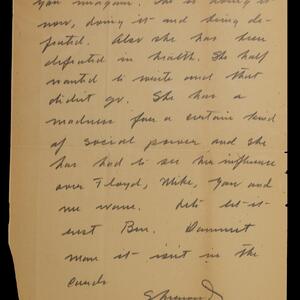 you imagine. She is doing it
now, doing it and being de-
feated. Also she has been
defeated in health. She half
wanted to write and that
didn't go. She has a
madness for a certain kind
of social power and she
has had to see her influence
over Floyd, Mike, you and
me wane. Let's let it
rest Ben. Dammit
man it isn't in the
cards
Sherwood